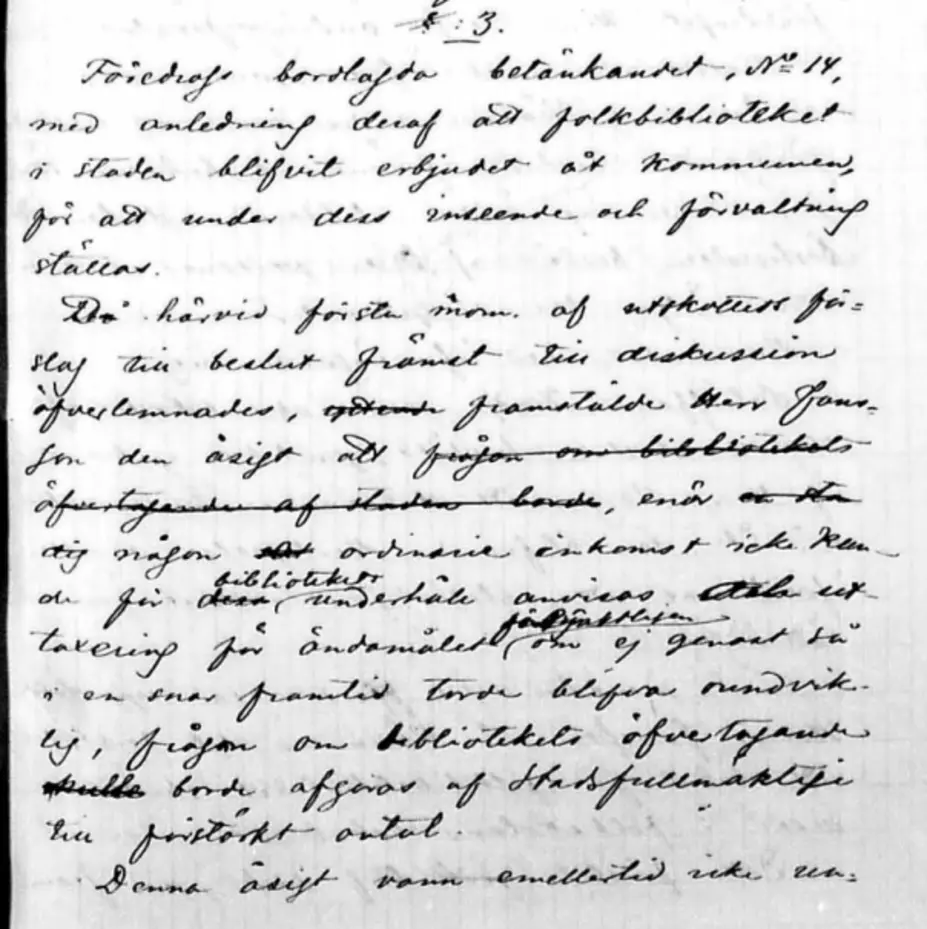 §: 3.
Föredrogs bordlagda betänkandet, No 14,
med anledning deraf att folkbiblioteket
i staden blifvit erbjudet åt kommunen,
för att under dess inseende och förvaltning
ställas.
Då härvid första mom. af utskottets för-
slag till beslut främst till diskussion
öfverlemnades, yttrade framstälde Herr Jans-
son den åsigt att frågan om bibliotekets
öfvertagande af staden borde, enär en stä
dig någon ordinarie inkomst icke kun-
de för dess bibliotekets underhåll anvisas utan ut-
taxering för ändamålet om ej genast så
i en snar framtid torde blifva oundvik-
lig, frågan om bibliotekets öfvertagande
skulle borde afgöras af Stadsfullmäktige
till förstärkt antal.
Denna åsigt vann emellertid icke un-